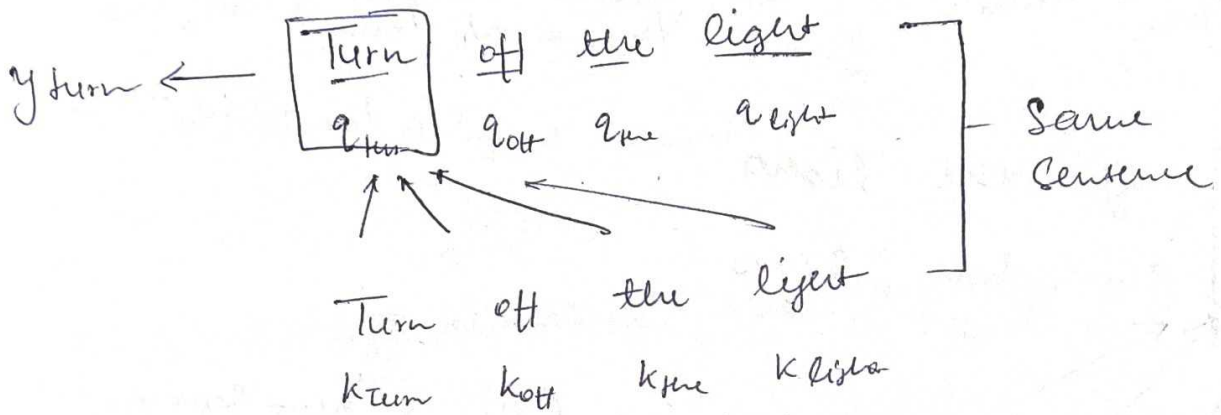 Turn off the light
y turn
q turn q off q the q light
Same
Sentence
Turn off the light
K Turn K off K the K light